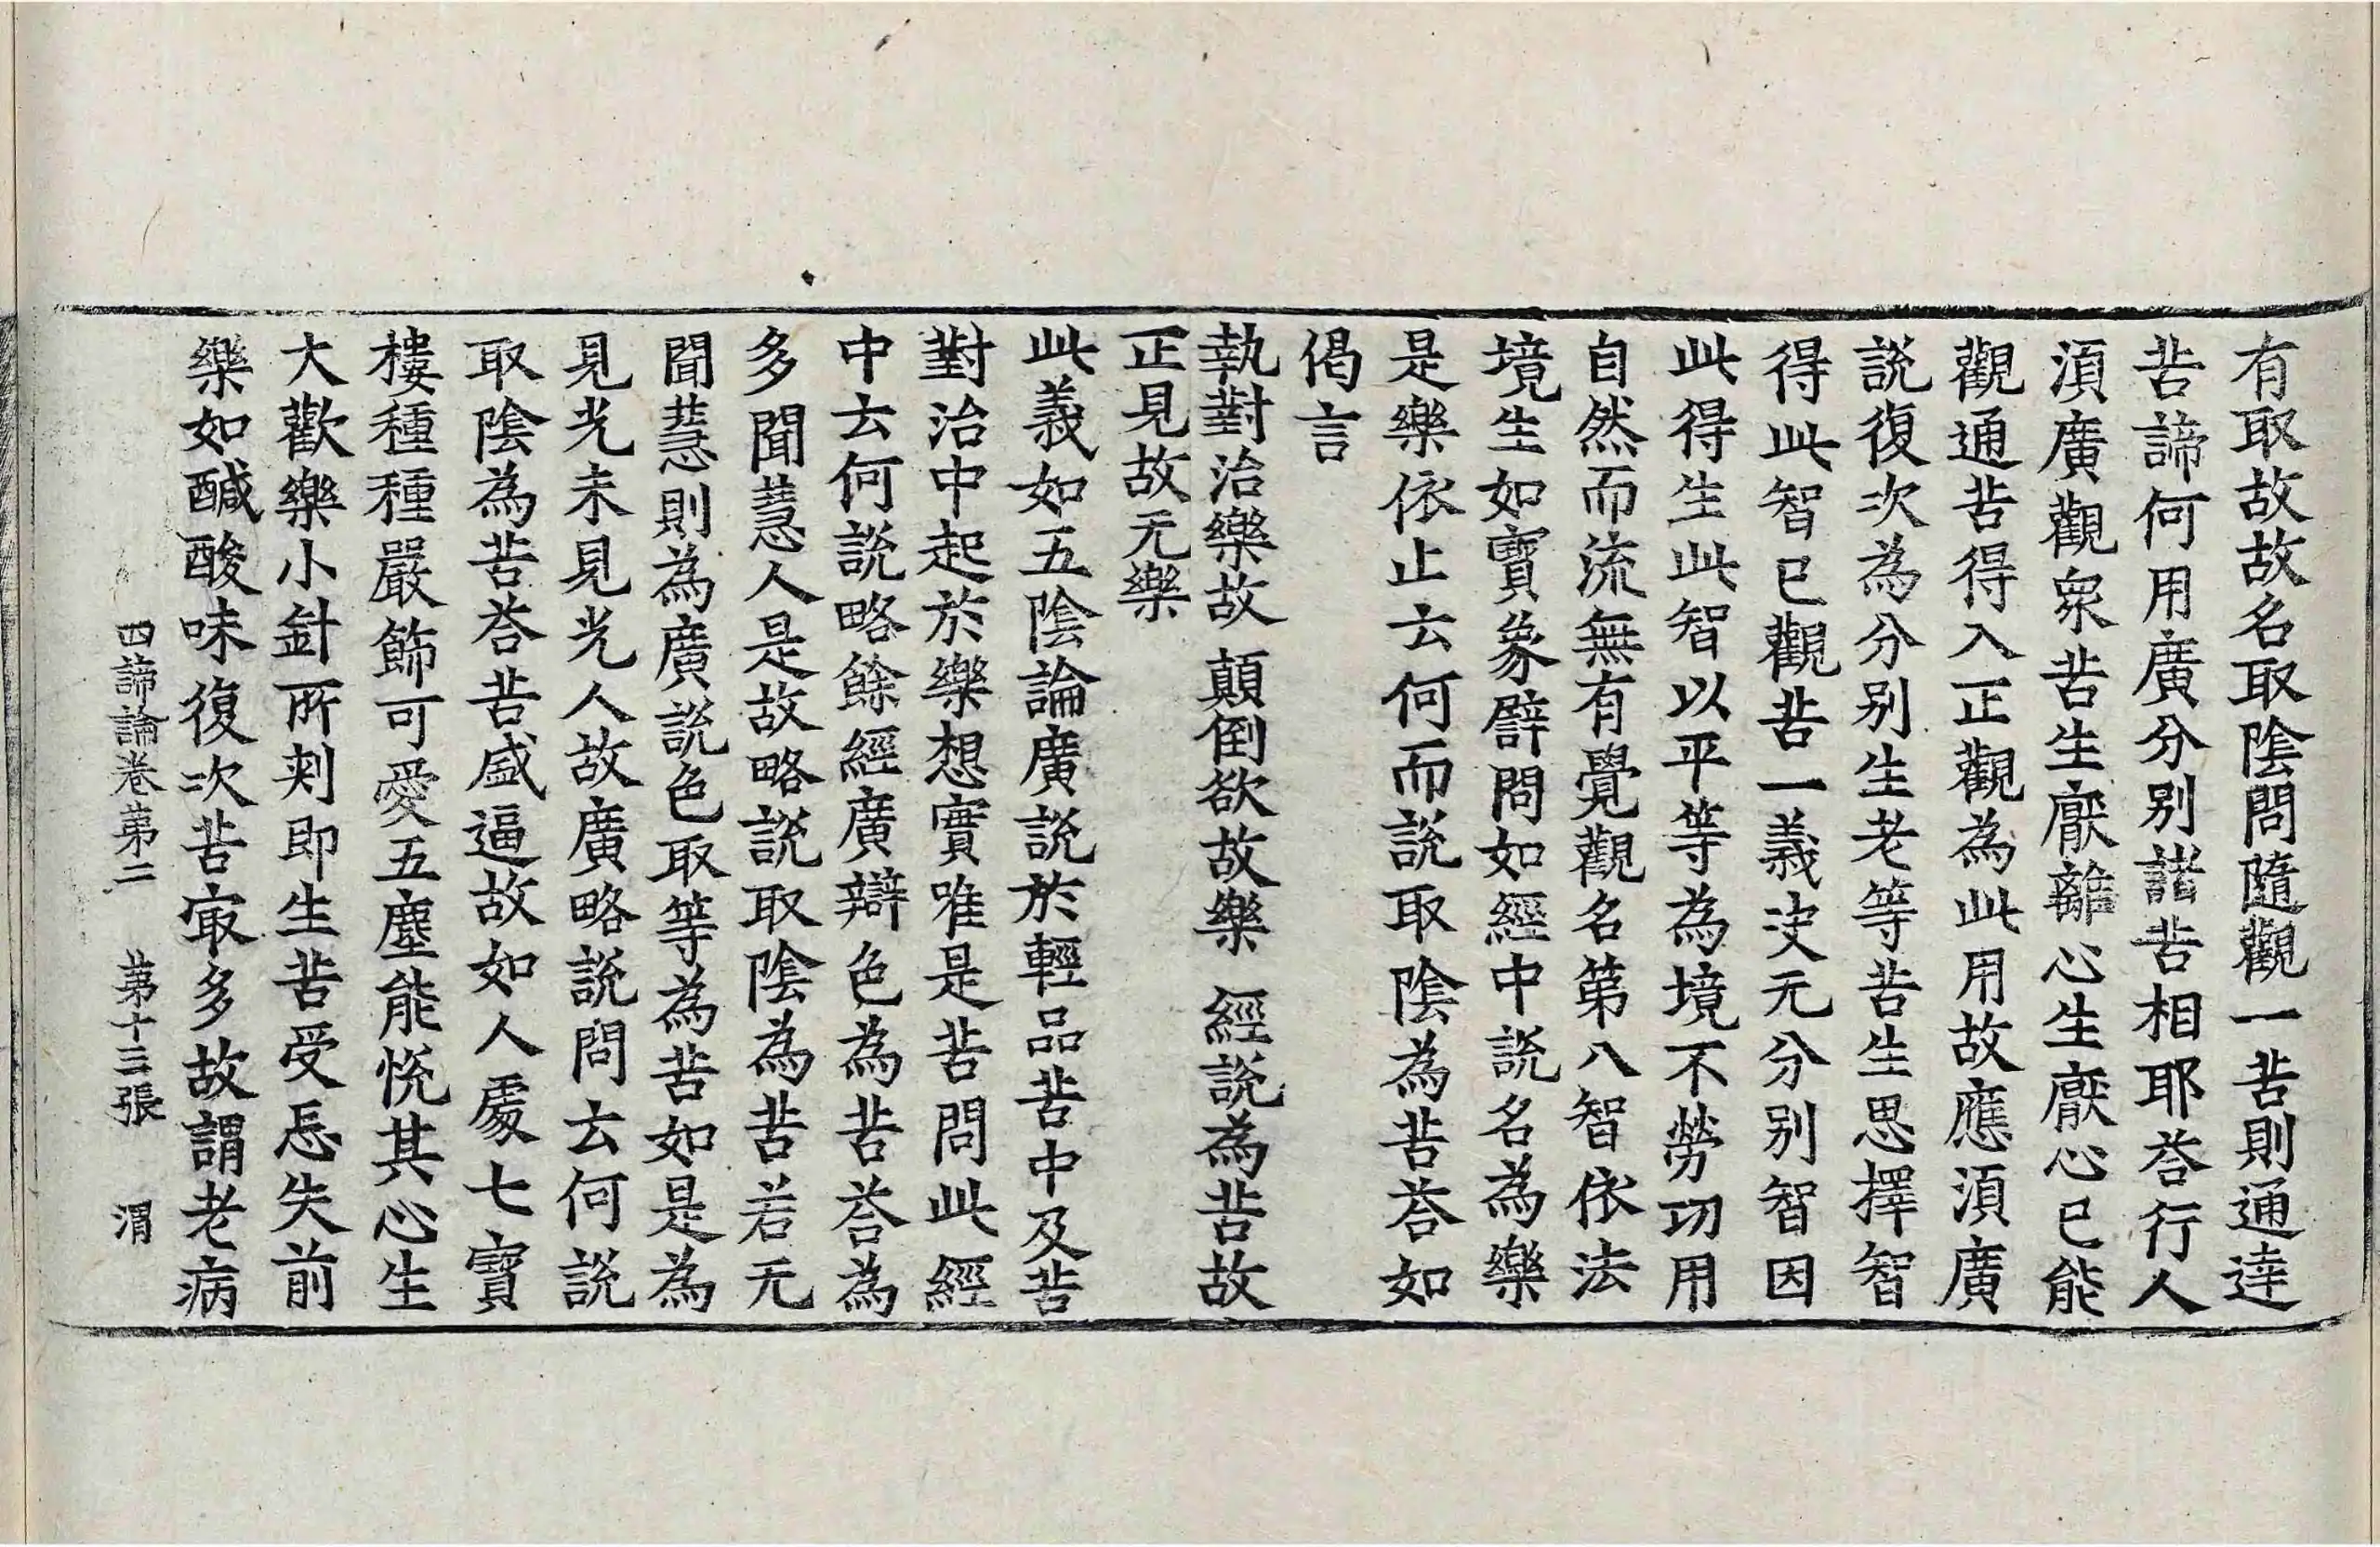 有取故故名取陰問隨觀一苦則通達
苦諦何用廣分別諸苦相耶荅行人
湏廣觀衆苦生厭離心生厭心已能
觀通苦得入正觀為此用故應湏廣
說復次為分别生老等苦生思擇智
得此智已觀苦一義决无分别智因
此得生此智以平等為境不勞功用
自然而流無有覺觀名第八智依法
境生如寳象譬問如經中說名為樂
是樂依止云何而說取陰為苦荅如
偈言
執對治樂故 顛倒欲故樂 經說為苦故
正見故无樂
此義如五陰論廣說於輕品苦中及苦
對治中起於樂想實唯是苦問此經
中云何說略餘經廣辯色為苦荅為
多聞慧人是故略說取陰為苦若无
聞慧則為廣說色取等為苦如是為
見光未見光人故廣略說問云何說
取陰為苦荅苦盛逼故如人處七寳
樓種種嚴飾可愛五塵能恱其心生
大歡樂小針所刾即生苦受忘失前
樂如醎酸味復次苦㝡多故謂老病
四諦論卷第二 第十三張 渭